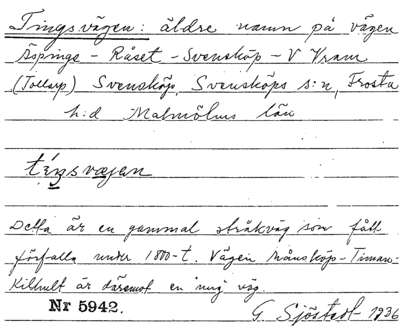 Tingsvägen: äldre namn på vägen
Äspinge - Råset - Svensköp - V Vram
(Tollarp) Svensköp, Svensköps s:n, Frosta
h:d Malmöhus län
tiŋsvæjen
Detta är en gammal stråkväg som fått
förfalla under 1800-t. Vägen Månsköp-Timan-
Killhult är däremot en "ny" väg.
Nr 5942.
G. Sjöstedt - 1936